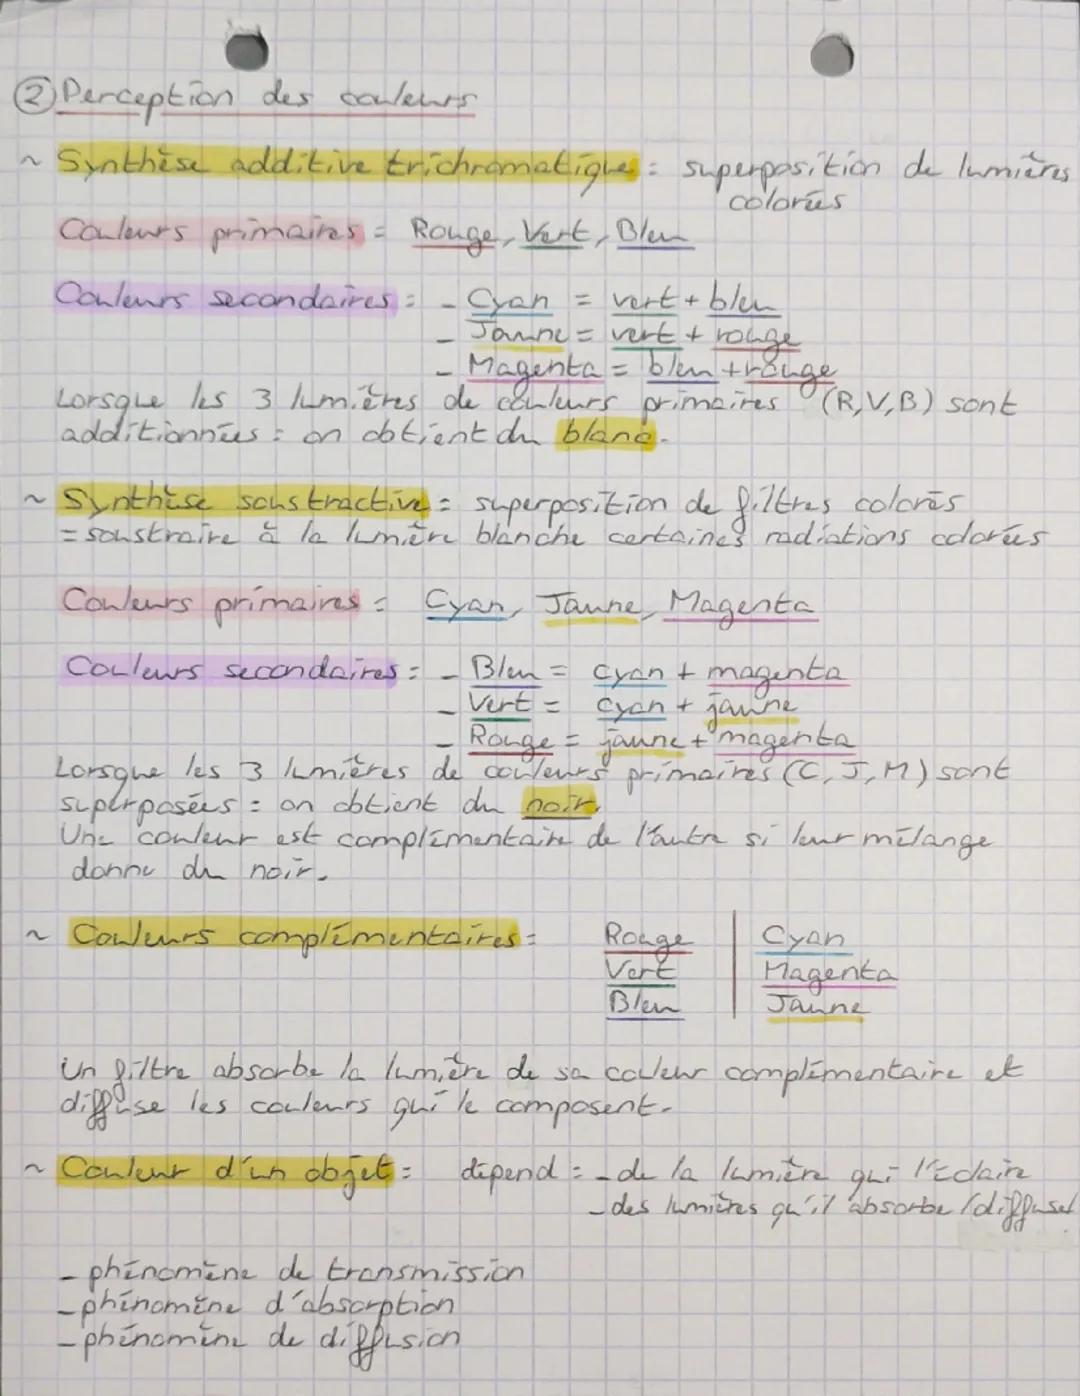 ② Perception des couleurs
~ Synthèse additive trichromatique : superposition de lumières
colorées
Couleurs primaires = Rouge, Vert, Bleu
Couleurs secondaires : - Cyan = vert + bleu
- Jaune = vert + rouge
- Magenta = bleu + rouge
Lorsque les 3 lumières de couleurs primaires (R,V,B) sont
additionnées : on obtient du blanc.
~ Synthèse soustractive : superposition de filtres colorés
= soustraire à la lumière blanche certaines radiations colorées
Couleurs primaires : Cyan, Jaune, Magenta
Couleurs secondaires : - Bleu = cyan + magenta
- Vert = cyan + jaune
- Rouge = jaune + magenta
Lorsque les 3 lumières de couleurs primaires (C, J, M) sont
superposées : on obtient du noir.
Une couleur est complémentaire de l'autre si leur mélange
donne du noir.
~ Couleurs complémentaires : Rouge | Cyan
Vert | Magenta
Bleu | Jaune
Un filtre absorbe la lumière de sa couleur complémentaire et
diffuse les couleurs qui le composent.
~ Couleur d'un objet : dépend : - de la lumière qui l'éclaire
- des lumières qu'il absorbe/diffuse
- phénomène de transmission
- phénomène d'absorption
- phénomène de diffusion